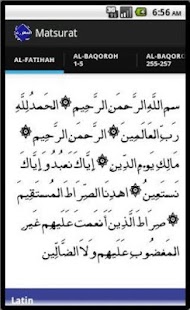 6:56 AM
Matsurat
AL-FATIHAH
AL-BAQOROH 1-5
AL-BAQOR 255-257
سْمِ اللَّهِ الرَّحْمَنِ الرَّحِيمِ ۞ الْحَمْدُ لِلَّهِ
رَبِّ الْعَالَمِينَ ۞ الرَّحْمَنِ الرَّحِيمِ ۞
مَالِكِ يَوْمِ الدِّينِ ۞ إِيَّاكَ نَعْبُدُ وَإِيَّاكَ
نَسْتَعِينُ ۞ اهْدِنَا الصِّرَاطَ الْمُسْتَقِيمَ
۞ صِرَاطَ الَّذِينَ أَنْعَمْتَ عَلَيْهِمْ غَيْرِ
الْمَغْضُوبِ عَلَيْهِمْ وَلَا الضَّالِّينَ
Latin